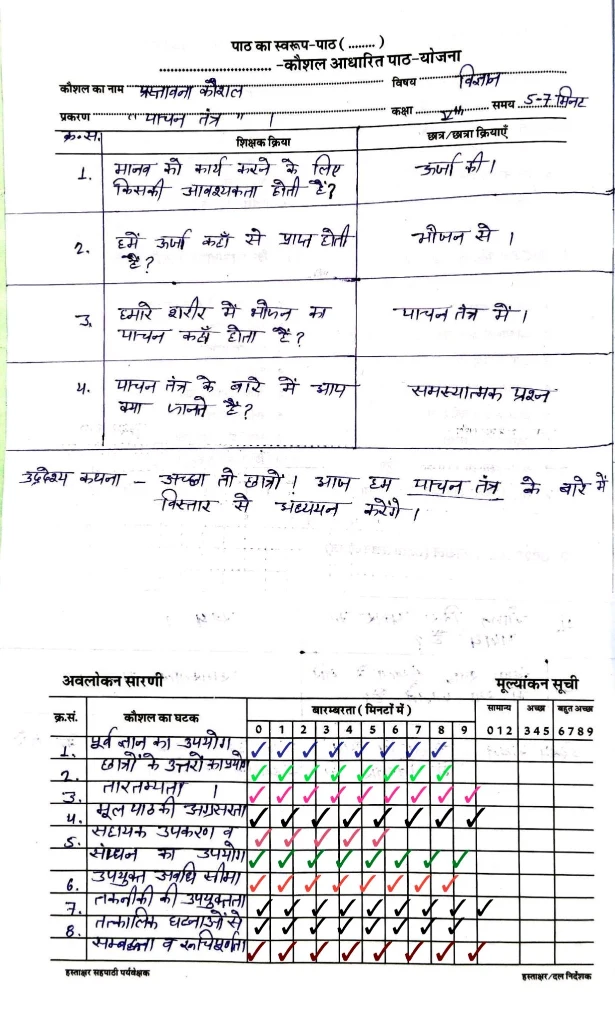 पाठ का स्वरूप-पाठ ( ........ )
................................ -कौशल आधारित पाठ-योजना
कौशल का नाम प्रस्तावना कौशल विषय विज्ञान
प्रकरण " पाचन तंत्र " । कक्षा Vth समय 5-7 मिनट
क्र०स. शिक्षक क्रिया छात्र/छात्रा क्रियाएँ
1. मानव को कार्य करने के लिए ऊर्जा की।
किसकी आवश्यकता होती है?
2. हमें ऊर्जा कहाँ से प्राप्त होती भोजन से ।
है?
3. हमारे शरीर में भोजन का पाचन तंत्र में।
पाचन कहाँ होता है?
4. पाचन तंत्र के बारे में आप समस्यात्मक प्रश्न
क्या जानते हैं?
उद्देश्य कथन – अच्छा तो छात्रों! आज हम पाचन तंत्र के बारे में
विस्तार से अध्ययन करेंगे ।
अवलोकन सारणी मूल्यांकन सूची
क्र.सं. कौशल का घटक बारम्बरता ( मिनटों में ) सामान्य अच्छा बहुत अच्छा
0 1 2 3 4 5 6 7 8 9 0 1 2 3 4 5 6 7 8 9
1. पूर्व ज्ञान का उपयोग
2. छात्रों के उत्तरों का प्रयोग
3. तारतम्यता ।
4. मूल पाठ की अग्रसरता
5. सहायक उपकरण व
साधन का उपयोग
6. उपयुक्त अवधि सीमा
7. तकनीकी की उपयुक्तता
8. तत्कालिक घटनाओं से
सम्बद्धता व रूचिपूर्णता
हस्ताक्षर सहपाठी पर्यवेक्षक हस्ताक्षर/दल निर्देशक